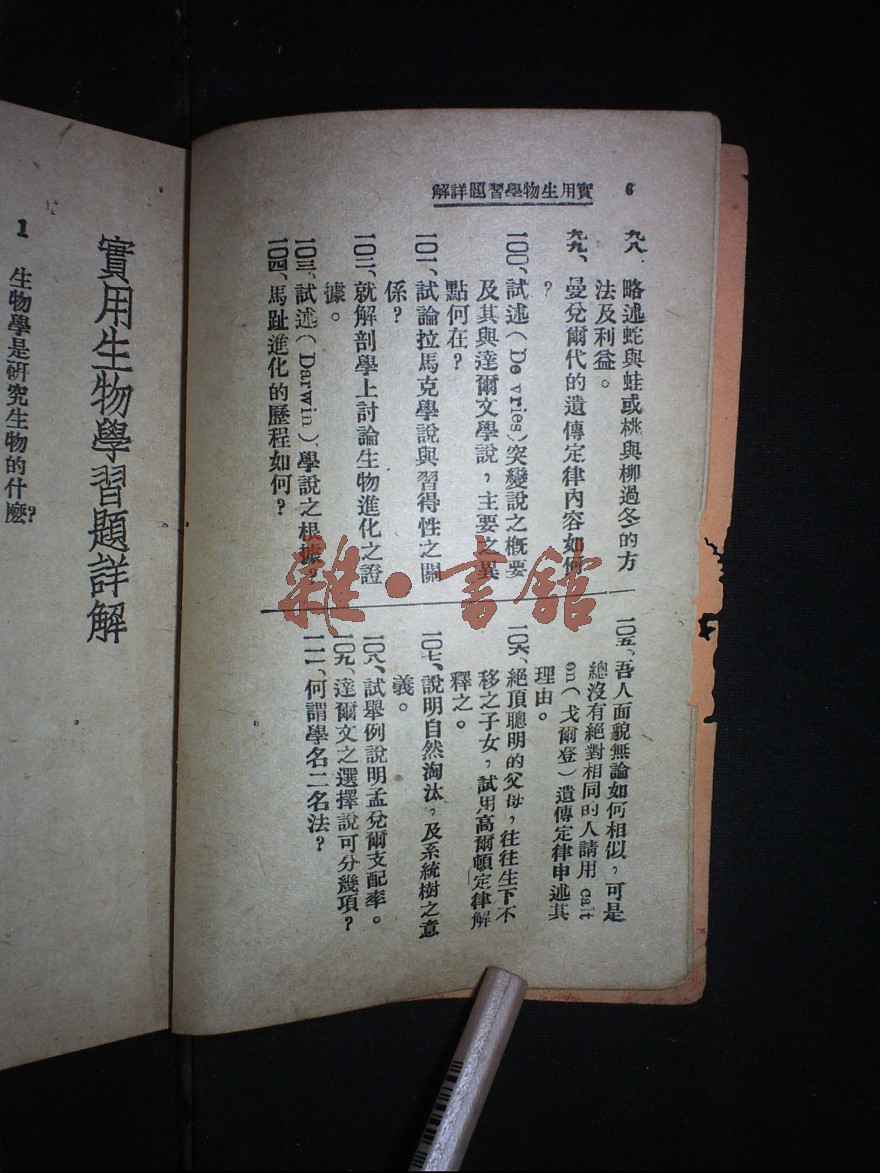 6
實用生物學習題詳解
九八、略述蛇與蛙或桃與柳過冬的方
法及利益。
九九、曼兌爾代的遺傳定律內容如何
?
一〇〇、試述(De vries)突變說之概要
及其與達爾文學說,主要之異
點何在?
一〇一、試論拉馬克學說與習得性之關
係?
一〇二、就解剖學上討論生物進化之證
據。
一〇三、試述(Darwin)學說之根據?
一〇四、馬趾進化的歷程如何?
一〇五、吾人面貌無論如何相似,可是
總沒有絕對相同的人請用 calt
on(戈爾登)遺傳定律申述其
理由。
一〇六、絕頂聰明的父母,往往生下不
移之子女,試用高爾頓定律解
釋之。
一〇七、說明自然淘汰,及系統樹之意
義。
一〇八、試舉例說明孟兌爾支配率。
一〇九、達爾文之選擇說可分幾項?
一一一、何謂學名二名法?
實用生物學習題詳解
1 生物學是研究生物的什麽?
雜·書館